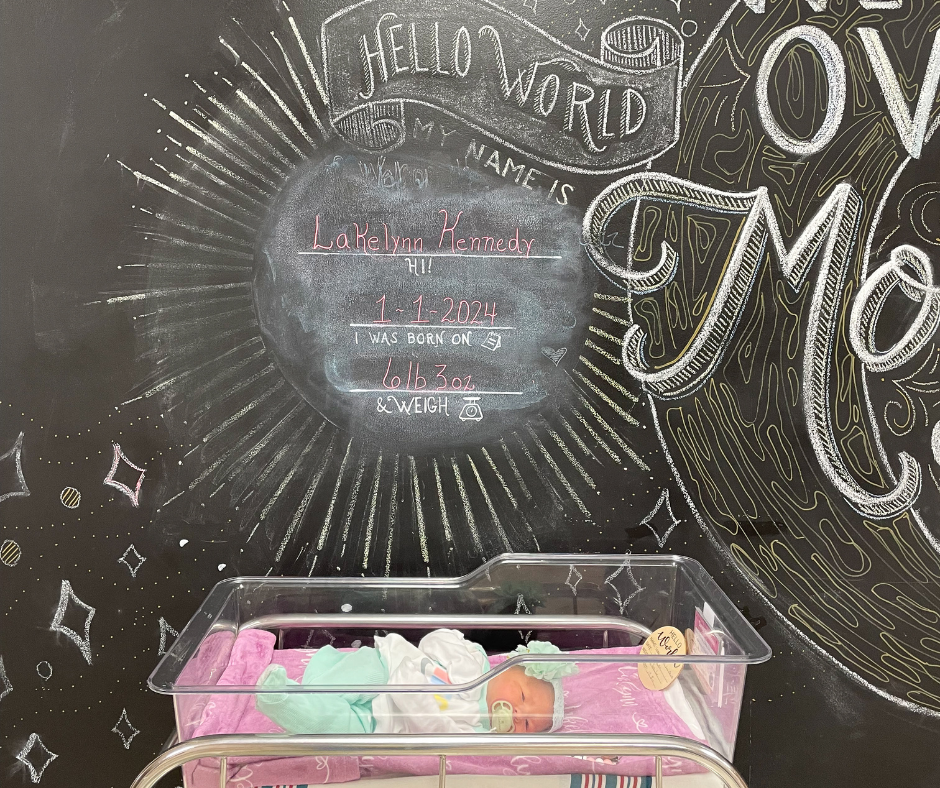 HELLO WORLD
MY NAME IS
LaKelynn Kennedy
HI!
1-1-2024
I WAS BORN ON
6lb 3oz
& WEIGH
OV
Mo
HELLO
World